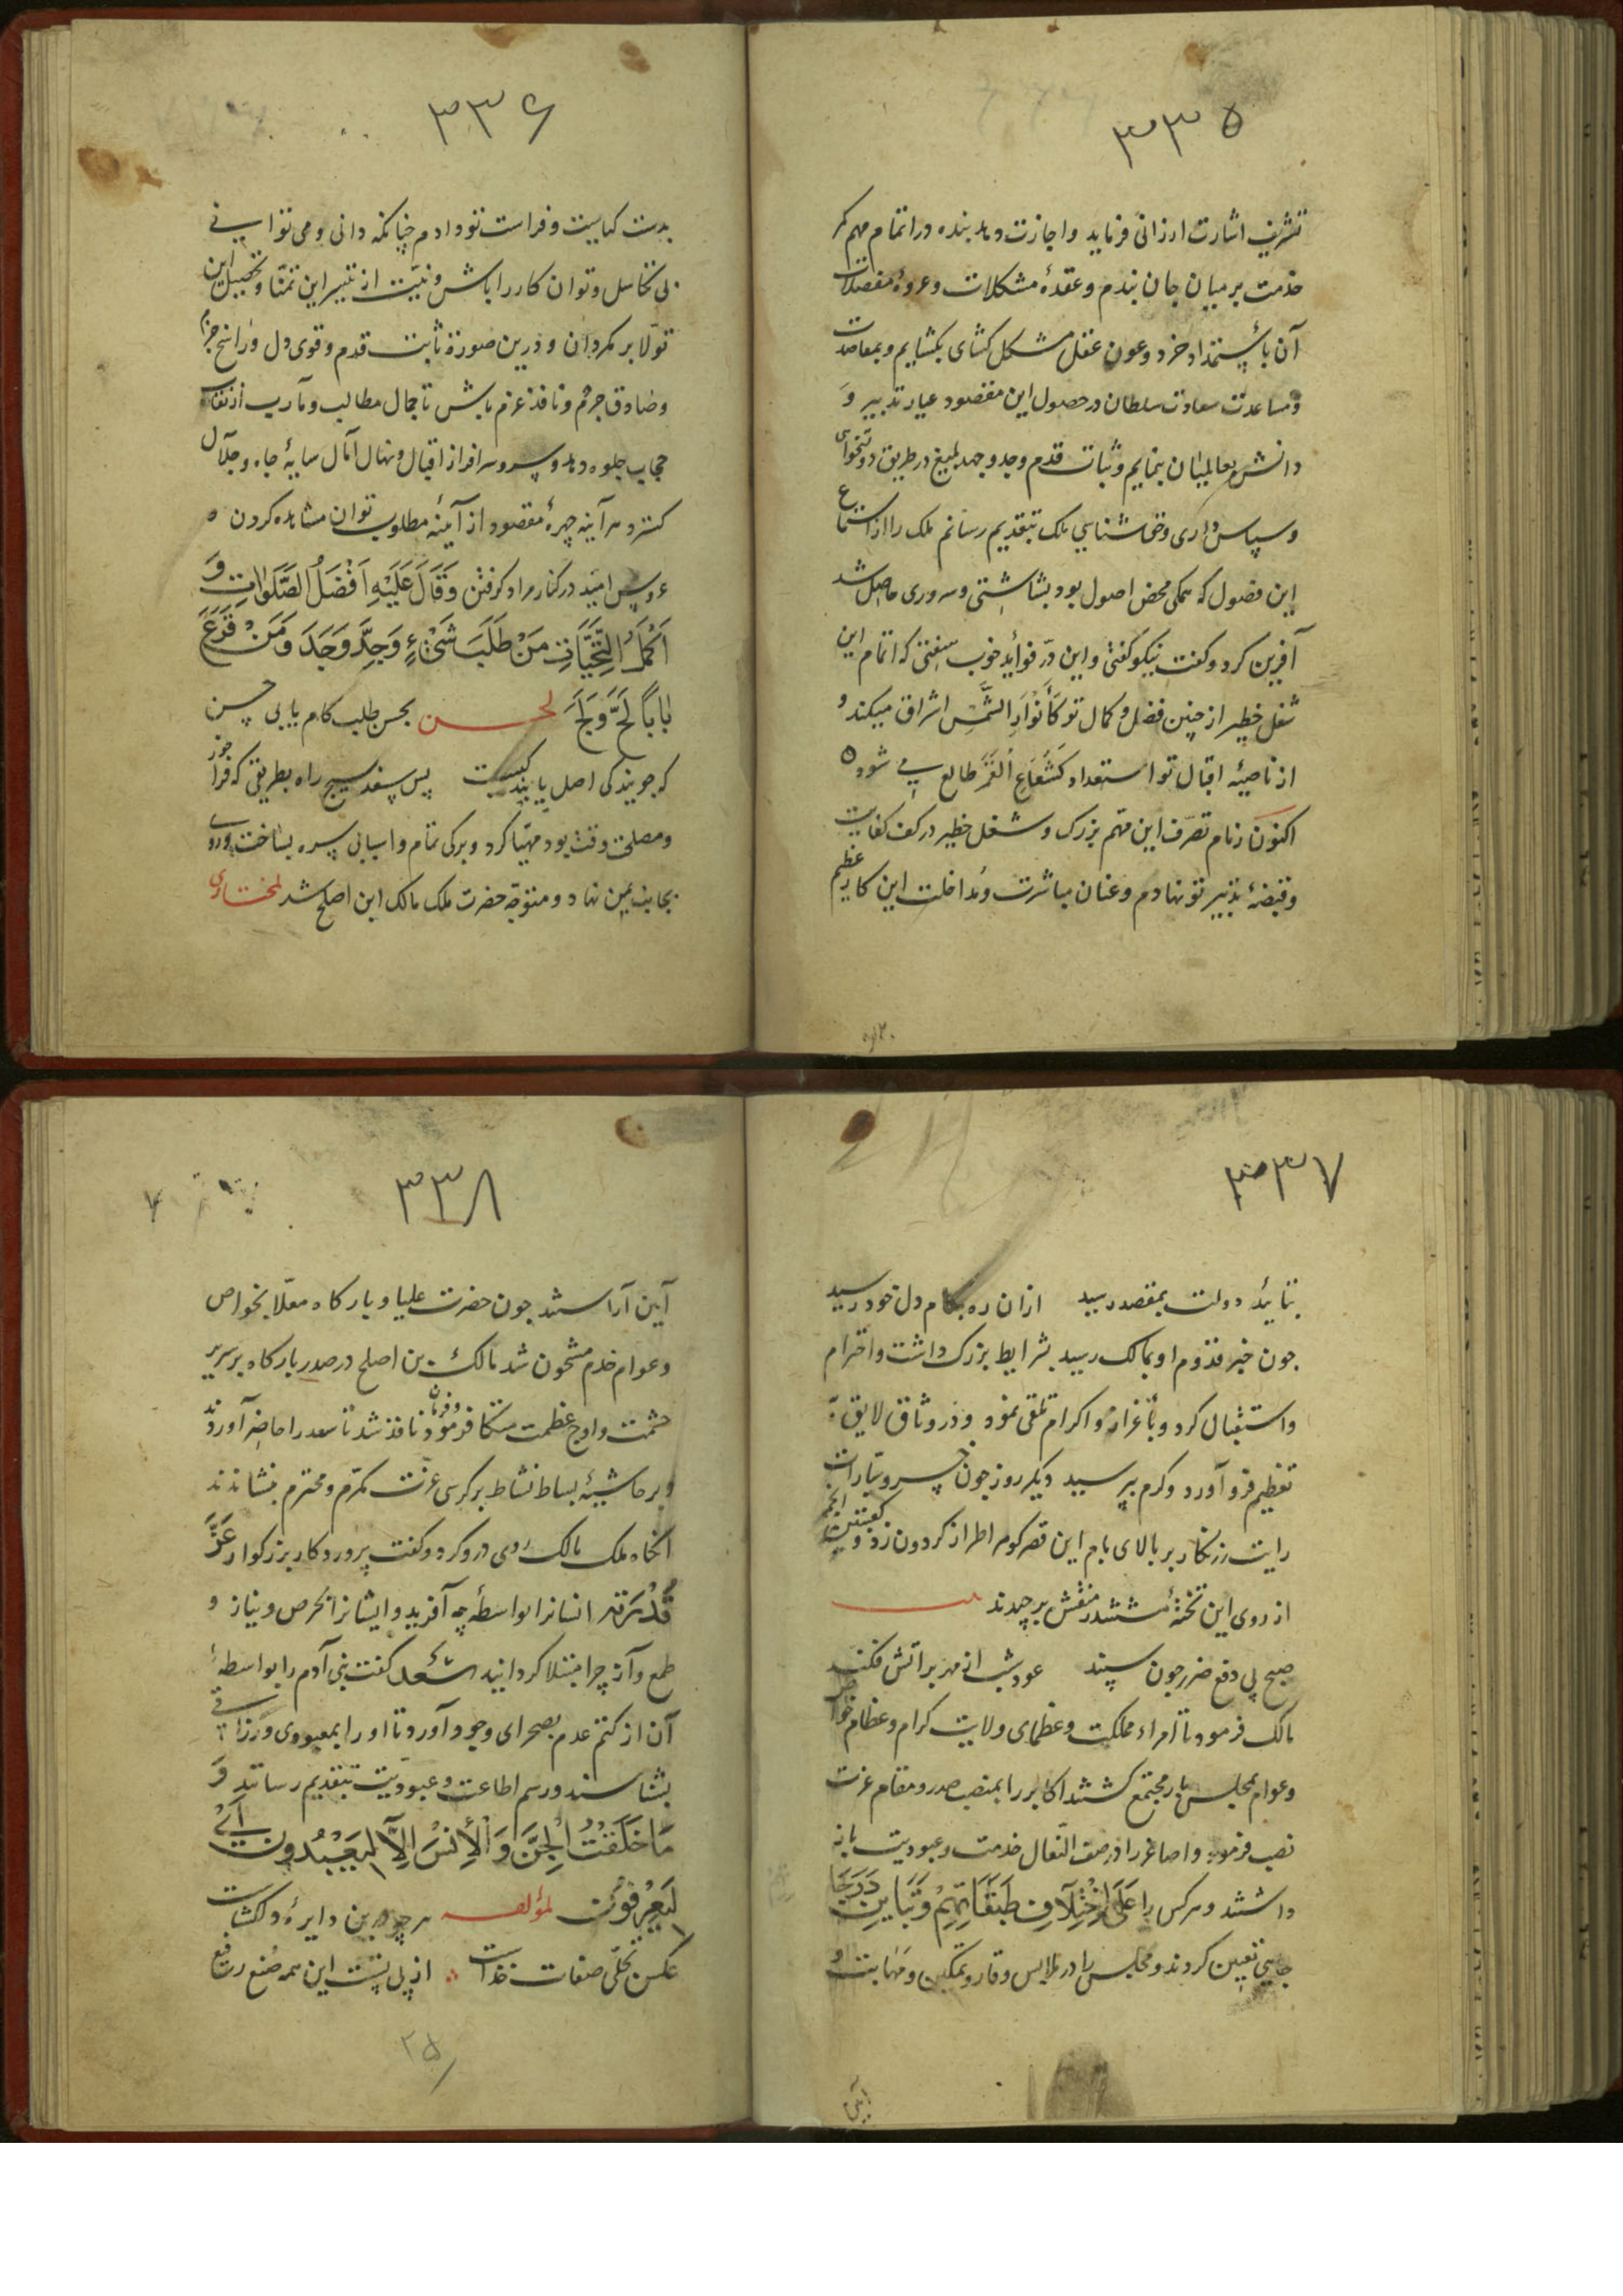 ۳۳۵
تشریف اشارت ارزانی فرماید و اجازت دهد بنده در اتمام مهم کمر
خدمت بر میان جان بندم و عقدهٔ مشکلات و عروهٔ معضلات
آن باستمداد خرد و عون عقل مشکل کشای بکشایم و بمعاضدت
و مساعدت سعادت سلطان در حصول این مقصود عیار تدبیر و
دانش بعالمیان بنمایم و ثبات قدم و جد و جهد بلیغ در طریق دولتخواهی
و سپاس داری و حق شناسی ملک بتقدیم رسانم ملک را از استماع
این فصول که همکی محض اصول بود بشاشتی و سروری حاصل شد
آفرین کرد و کفت نیکو کفتی و این در فواید خوب سفتی که اتمام این
شغل خطیر از چنین فضل و کمال تو کَأَنْوَارِ الشَّمْسِ اشراق میکند و
از ناصیهٔ اقبال تو استعداد کَشُعَاعِ الْقَمَرِ طالع می شود ه
اکنون زمام تصرّف این مهم بزرک و شغل خطیر در کف کفایت
و قبضهٔ تدبیر تو نهادم و عنان مباشرت و مداخلت این کار عظیم
۳۳۶
بدست کیاست و فراست تو دادم چنانکه دانی و می توانی
بی تکاسل و توان کار را باش و نیت از تیسیر این تمنّا و تحصیل این
تولّا بر مکردان و درین صورة ثابت قدم و قوی دل و راسخ جزم
و صادق جرم و نافذ عزم باش تا جمال مطالب و مآرب از نقاب
حجاب جلوه دهد و سرو سرافراز اقبال و نهال آمال سایهٔ جاه و جلال
کسترد هر آینه چهرهٔ مقصود از آینهٔ مطلوب توان مشاهده کردن ه
عروس امید در کنار مراد کرفتن وَقَالَ عَلَیْهِ اَفْضَلُ الصَّلَوٰاتِ وَ
اَکْمَلُ التَّحِیَّاتِ مَنْ طَلَبَ شَیْئًا وَجَدَّ وَجَدَ وَمَنْ قَرَعَ
بَابًا لَجَّ وَلَجَ لحسن بحسن طلب کام یابی حسن
که جویندکی اصل یابندکیست پس بسیج راه بطریقی که فراخور
و مصلحت وقت بود مهیّا کرد و برکی تمام و اسبابی سره بساخت و روی
بجانب یمن نهاد و متوجّه حضرت ملک مالک ابن اصلح شد لمختاری
۳۳۷
بتائید دولت بمقصد رسید ازان ره بکام دل خود رسید
چون خبر قدوم او بمالک رسید بشرایط بزرک داشت و احترام
و استقبال کرد و باعزاز و اکرام تلقی نمود و در وثاق لایق
تعظیم فرو آورد و کرم بپرسید دیکر روز چون خسرو سیارات
رایت زرنکار بر بالای بام این قصر کوهر طراز کردون زد و کعبتین انجم
از روی این تختهٔ ششدر منقش برچیدند
صبح پی دفع ضرر چون سپند عود شب از مهر بر آتش فکند
مالک فرمود تا امراء مملکت و عظمای ولایت کرام و عظام خواص
و عوام بمجلس بار مجتمع کشتند اکابر را بمنصب صدر و مقام عزت
نصب فرمود و اصاغر را در صف النعال خدمت و عبودیت باز
داشتند و هرکس را عَلَی اخْتِلَافِ طَبَقَاتِهِمْ وَتَبَایُنِ دَرَجَا
جایی تعیین کردند و مجلس را در ملابس وقار و تمکین و مهابت و
آیین
۳۳۸
آیین آراستند چون حضرت علیا و بارکاه معلّا بخواص
و عوام خدم مشحون شد مالک بن اصلح در صدر بارکاه بر سریر
حشمت و اوج عظمت متکا فرمود و فرمان نافذ شد تا سعد را حاضر آوردند
و بر حاشیهٔ بساط نشاط بر کرسی عزت مکرّم و محترم بنشاندند
آنکاه ملک مالک روی درو کرد و کفت پروردکار بزرکوار عَزَّ
قُدْرَتُهُ انسانرا بواسطهٔ چه آفرید و ایشانرا بحرص و نیاز و
طمع و آز چرا مبتلا کردانید سَعْد کفت بنی آدم را بواسطهٔ
آن از کتم عدم بصحرای وجود آورد تا او را بمعبودی و رزاقی
بشناسند و رسم اطاعت و عبودیت بتقدیم رسانند وَ
مَا خَلَقْتُ الْجِنَّ وَ الْأِنْسَ اِلَّا لِیَعْبُدُونِ اَیْ
لِیَعْرِفُونِ لمؤلفه هر چه درین دایرهٔ دلکشاست
عکس تجلّی صفات خداست از پی تست این همه صنع رفیع
۲۵